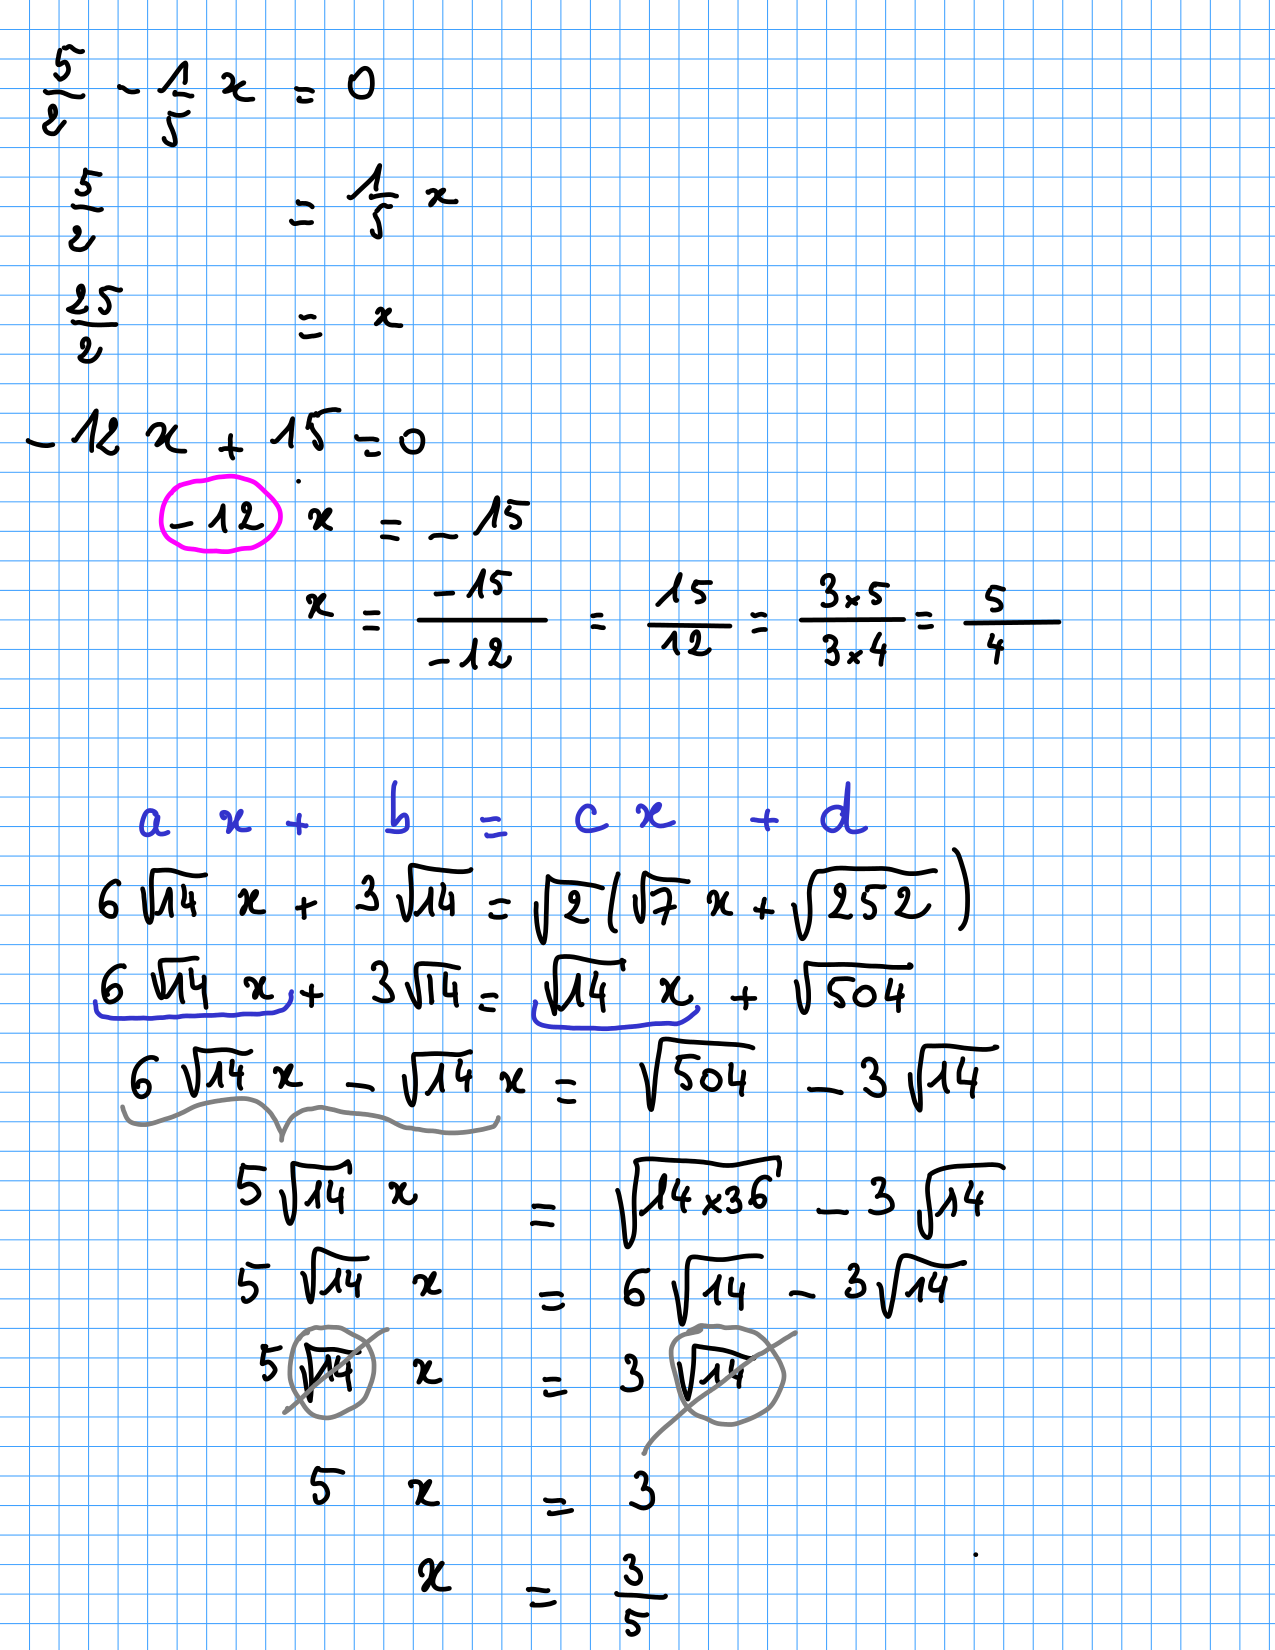 5/2 - 1/5 x = 0
5/2 = 1/5 x
25/2 = x
- 12 x + 15 = 0
- 12 x = - 15
x = -15/-12 = 15/12 = 3×5/3×4 = 5/4
a x + b = c x + d
6 √14 x + 3 √14 = √2 ( √7 x + √252 )
6 √14 x + 3 √14 = √14 x + √504
6 √14 x - √14 x = √504 - 3 √14
5 √14 x = √14×36 - 3 √14
5 √14 x = 6 √14 - 3 √14
5 √14 x = 3 √14
5 x = 3
x = 3/5